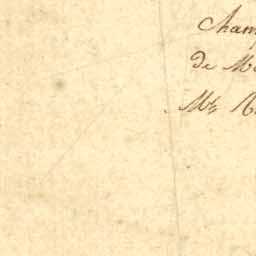 Cham
de M
Mr. R